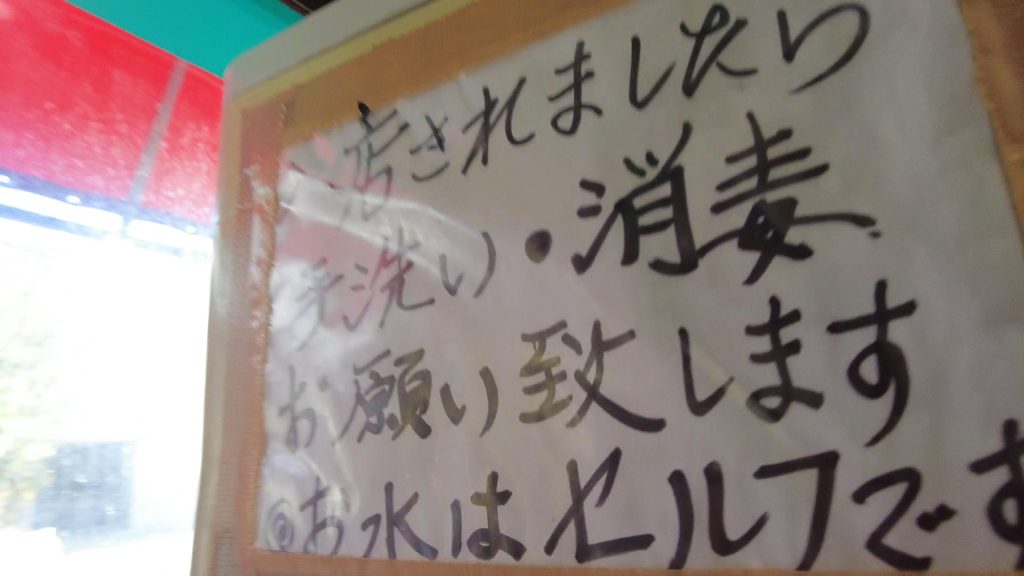 店されましたら
手洗い・消毒
お願い致します
◎お水はセルフです